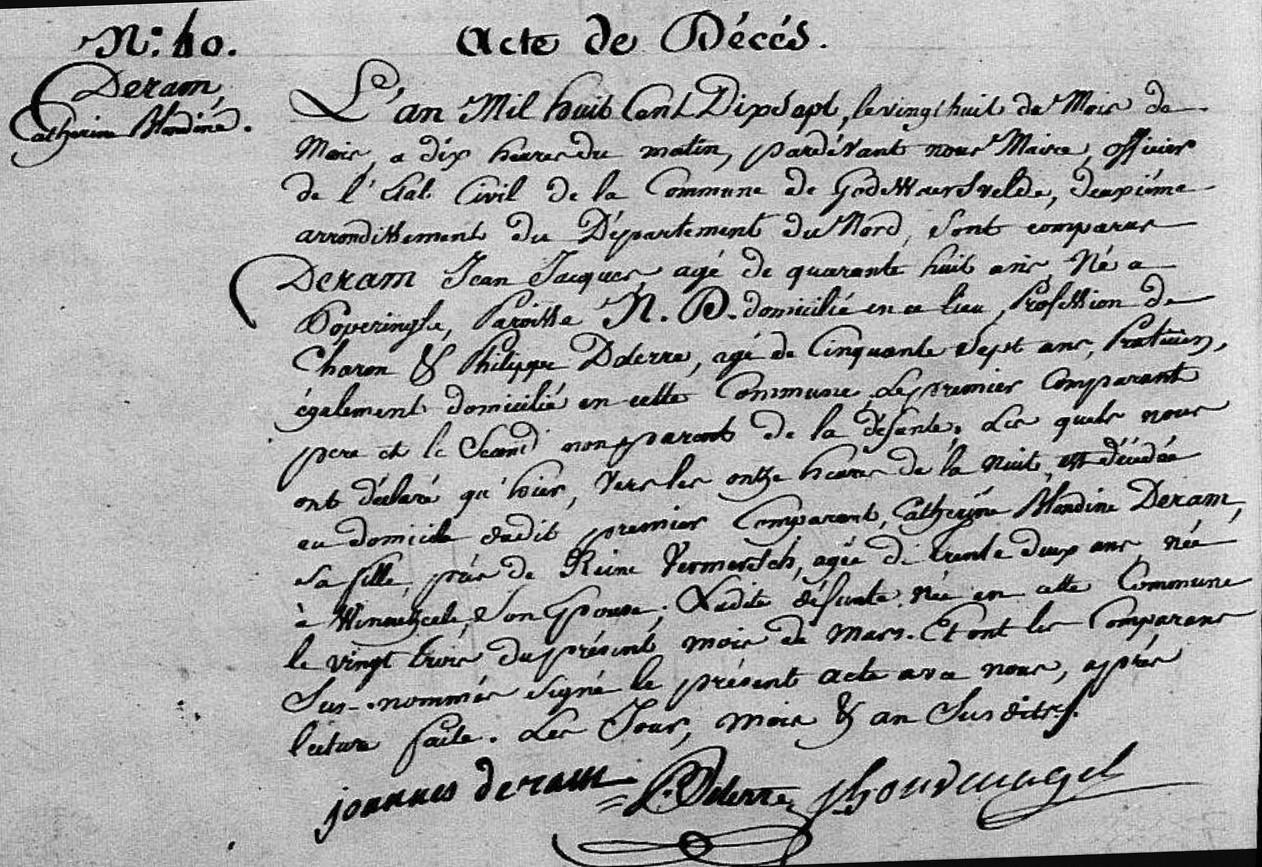 N.º 10.
Acte de Décés.
Deram,
Catherine Blandine.
L'an Mil huit Cent Dix Sept, le vingt huit du Mois de
Mois, a dix heures du matin, pardévant nous Maire, officier
de l'Etat Civil de la Commune de Godewaersvelde, deuxiéme
arrondissement du Département du Nord, Sont comparus
Deram Jean Jacques agé de quarante huit ans, Né a
Poperinghe, Paroisse N. D. domicilié en ce lieu, Profession de
Charon & Philippe Delerre, agé de Cinquante Sept ans, Praticien,
égalements domicilié en cette Commune, Le premier Comparant
pere et le Second non parent de la défunte. Les quels nous
ont déclaré qu'hier, Vers les onze heures de la nuit, est décédée
au domicile dudit premier Comparant, Catherine Blandine Deram,
sa fille, près de Reine Vermersch, agée de trente deux ans, née
à Winnezeele, Son Epouse. Ladite défunte née en cette Commune
le vingt trois du présent mois de Mars. Et ont les Comparans
Sus-nommés signé le présent acte avec nous, après
lecture faite. Les Jour, mois & an Susdits.
joannes deram P. Delerre